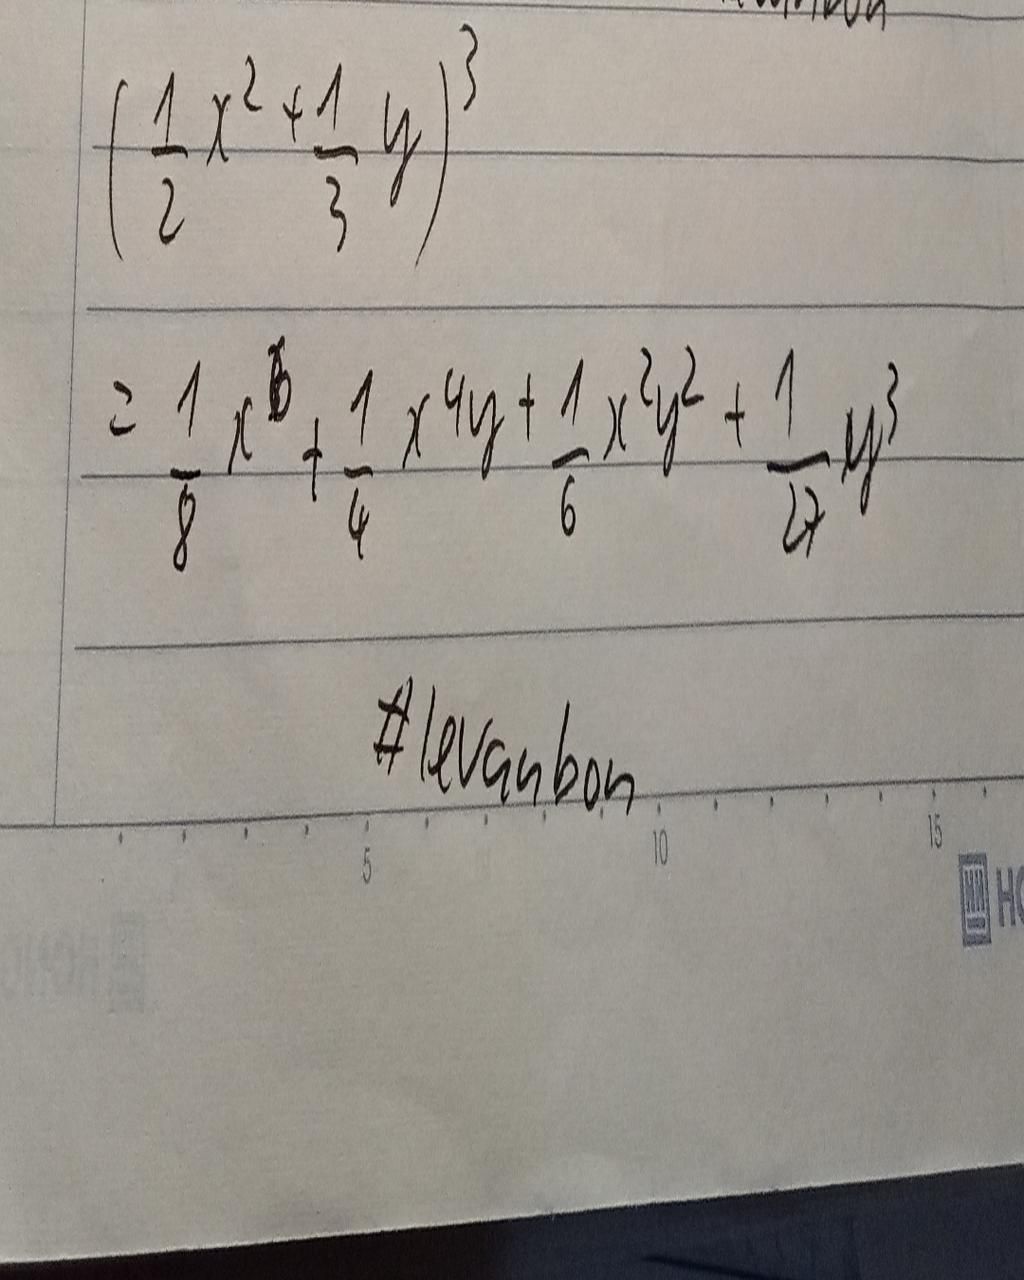 (1/2 x² + 1/3 y)³
= 1/8 x⁶ + 1/4 x⁴y + 1/6 x²y² + 1/27 y³
#levanbon
5 10 15